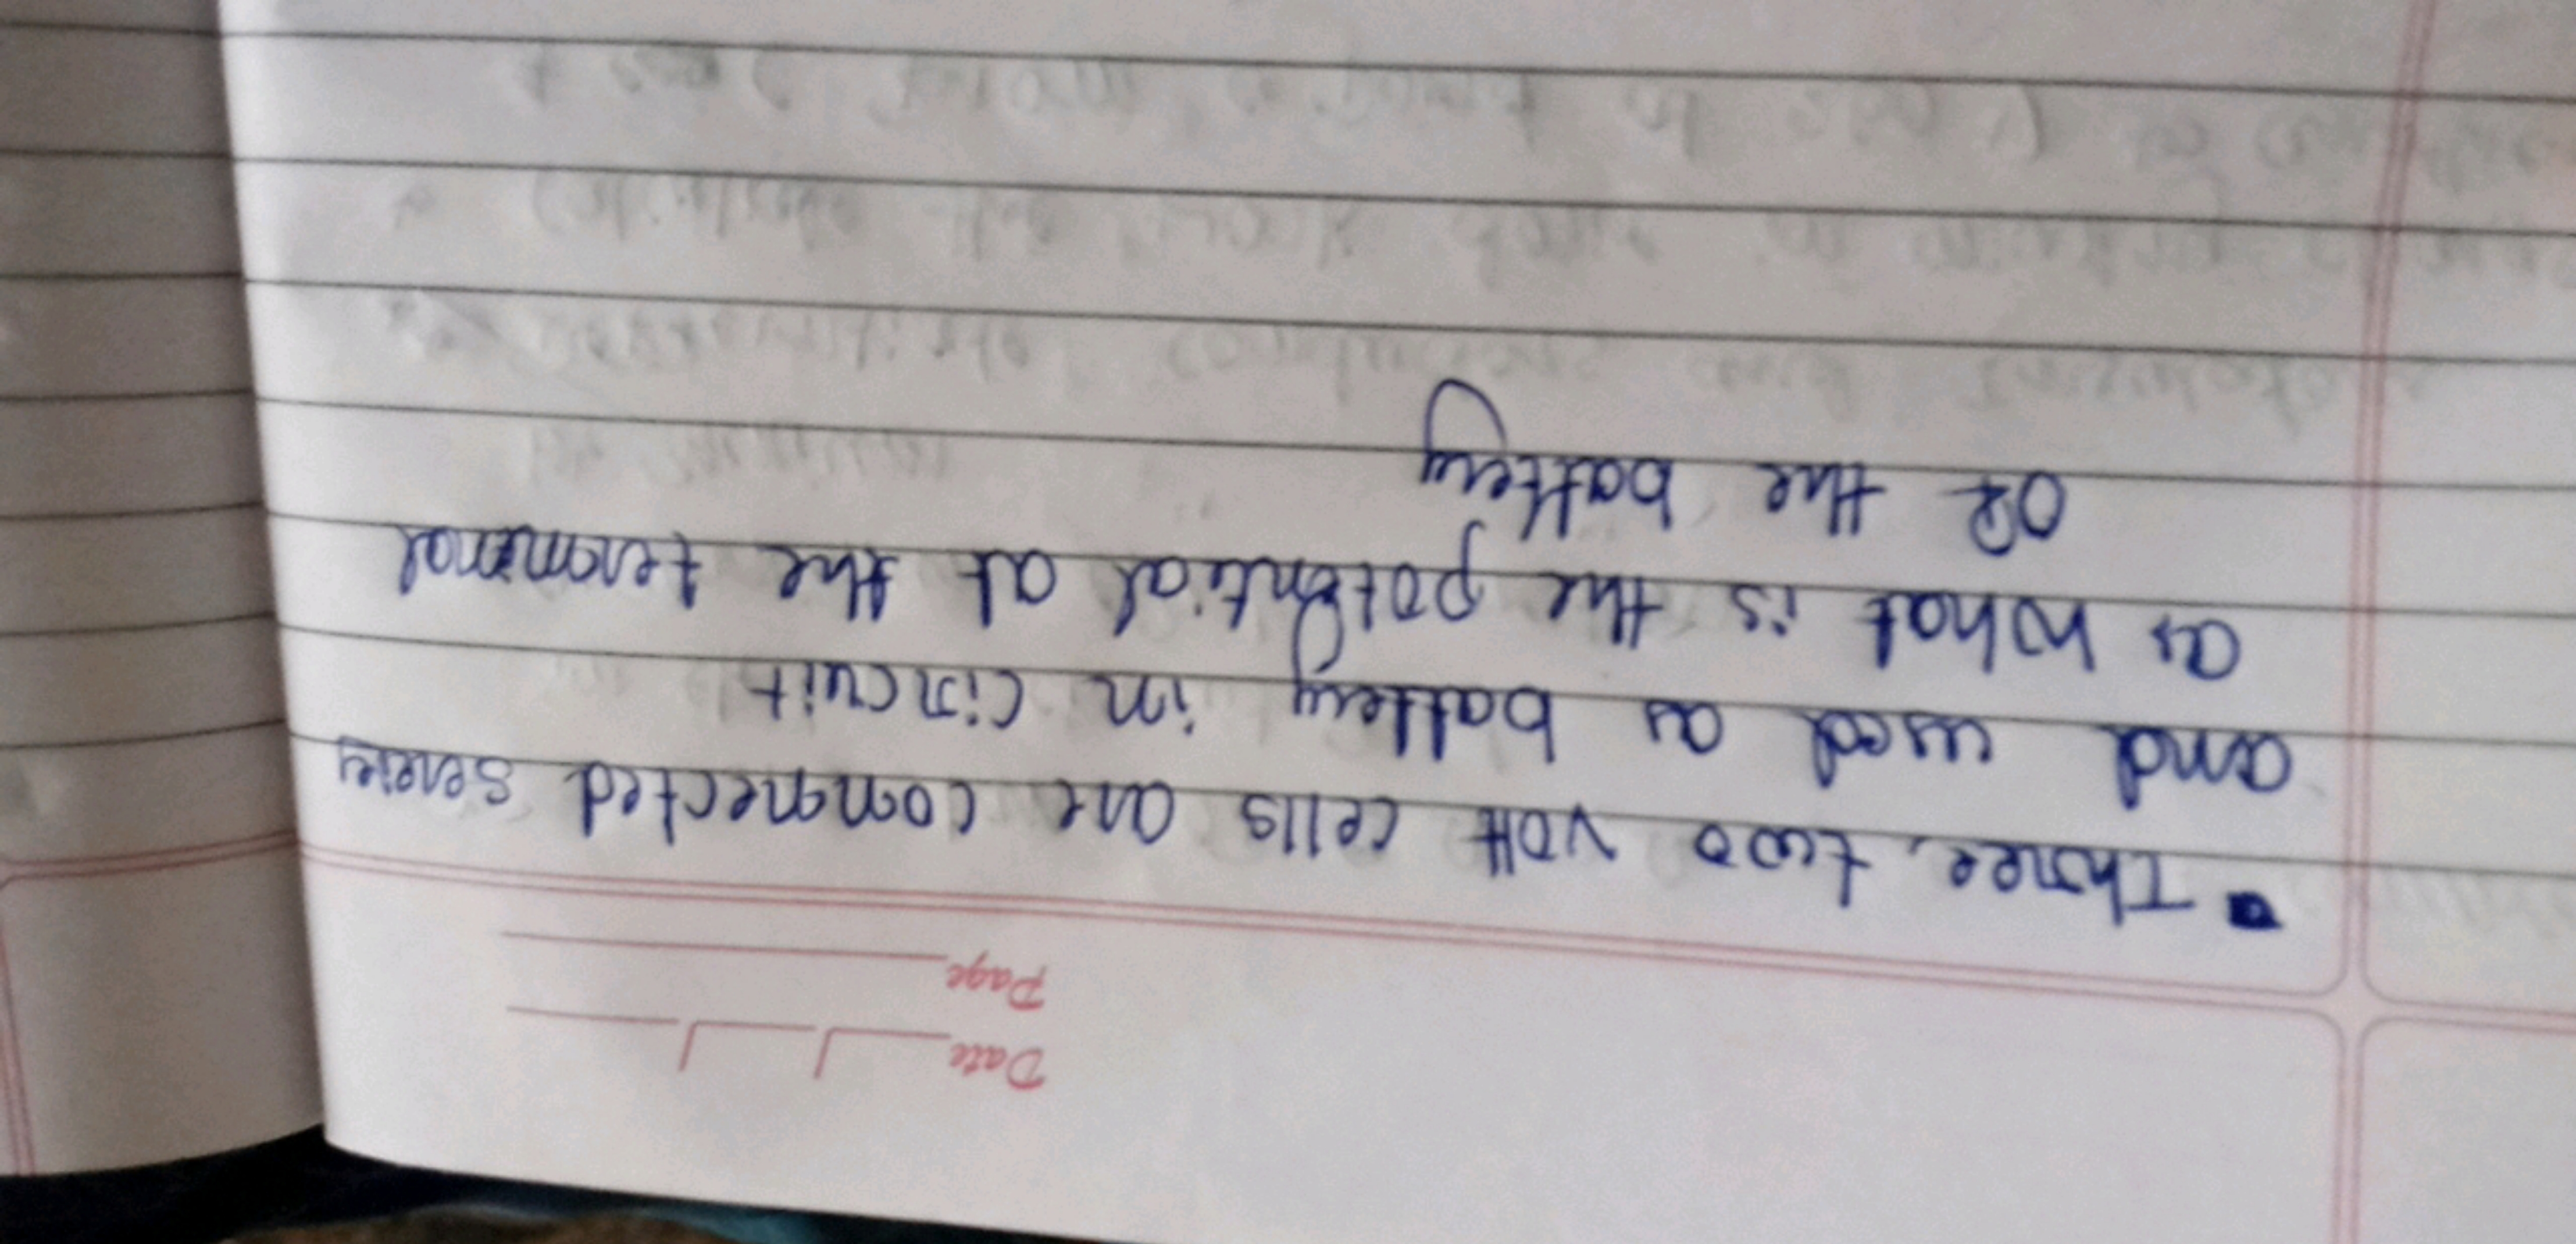 Date
Page
Three, two volt cells are connected series
and used as battery in circuit
a, what is the potential at the terminal
of the battery